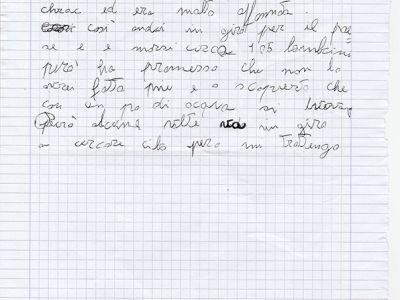 ed era molto affamata.
così andai in giro per il pae
se e e morsi circa 125 bambini
però ha promesso che non lo
fatta più e o scoperto che
con un po di acqua si
Però alcune volte in giro
a cercare cibo però mi trattengo